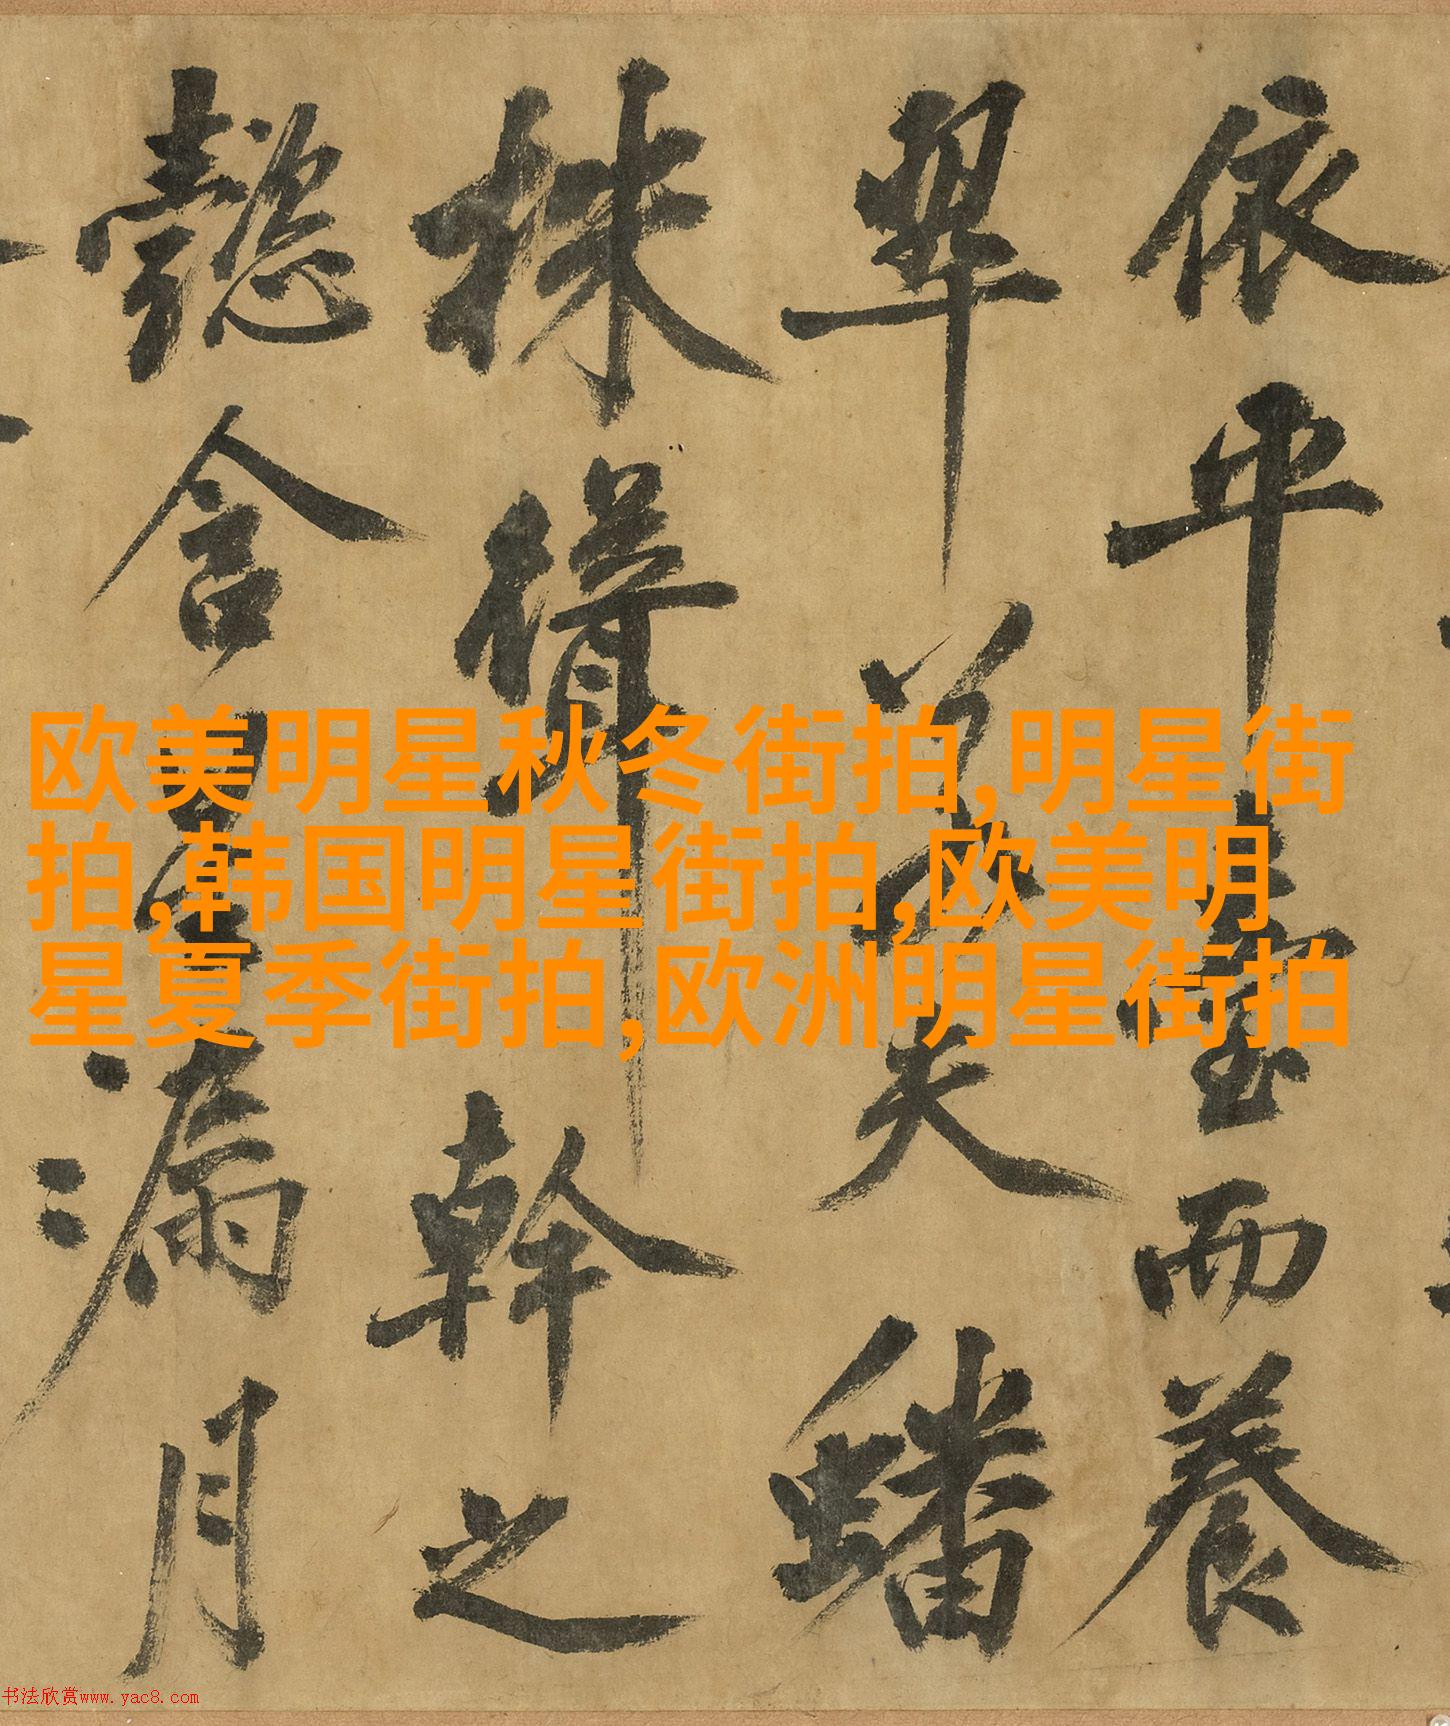 欧美明星秋冬街拍,明星街
拍,韩国明星街拍,欧美明
星夏季街拍,欧洲明星街拍
依平臺而養
翠若夫蟠
林幹之
懿含星漏月
书法欣赏www.yac8.com